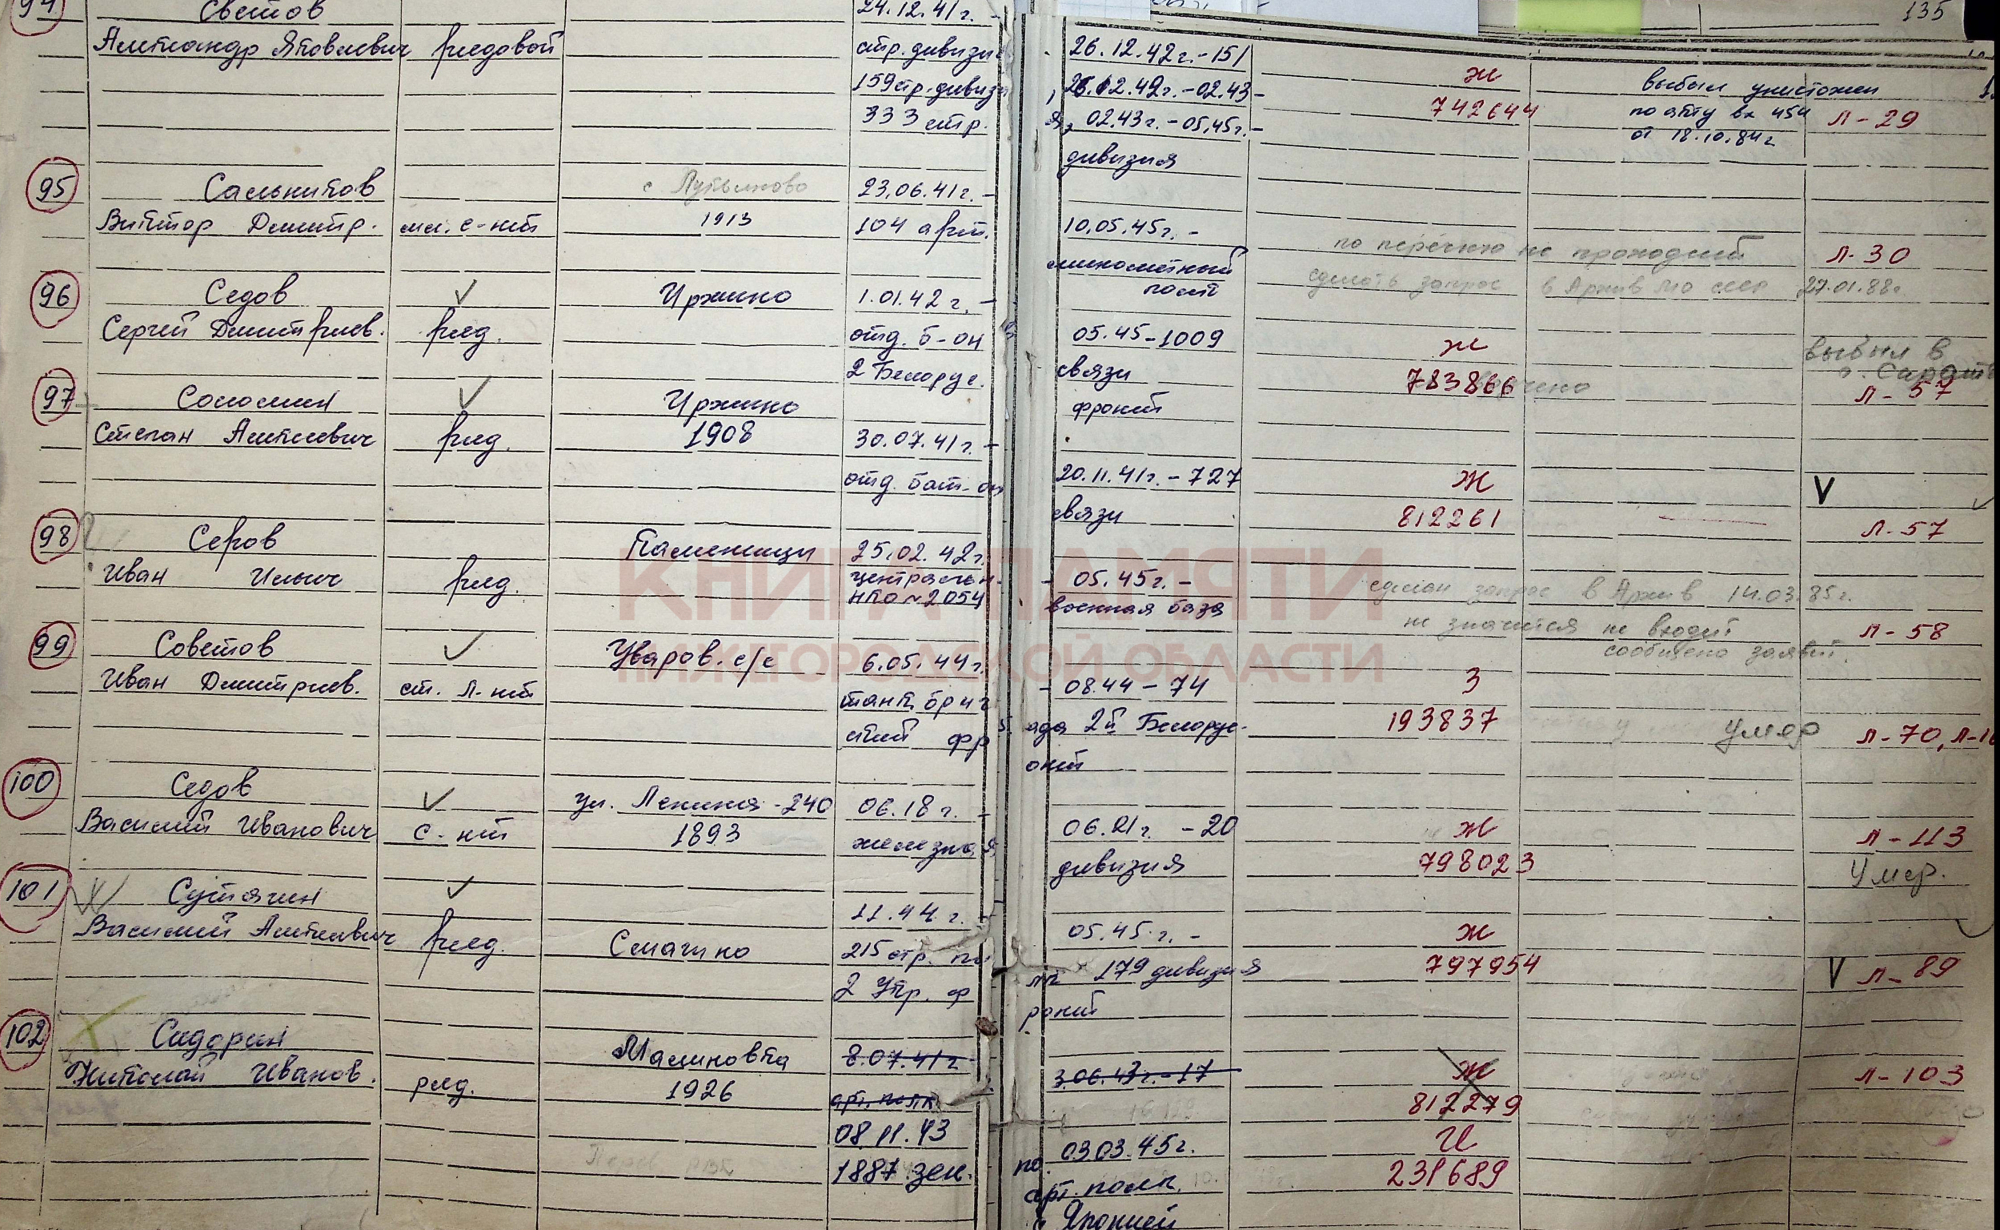 135
94 Светов 24.12.41г. -
Александр Яковлевич рядовой стр. дивизи 26.12.42г. - 151
159 стр. дивиз 26.12.42г. - 02.43 - Ж выбыл уничтожен
333 стр. 02.43г. - 05.45г. - 742644 по акту вх 454 Л-29
дивизия от 18.10.84г
95 Сальников 23.06.41г. -
Виктор Дмитр. мл. с-нт 1913 104 арт. 10.05.45г. -
миномётный по перечню не проходит Л-30
полк сделать запрос в Архив МО СССР 27.01.88г
96 Седов ✓ Иржино 1.01.42г. -
Сергей Дмитриев. ряд. отд. б-он 05.45 - 1009 Ж выбыл в
2 Белорус. связи 783866 г. Сарат
фронт Л-57
97 Соломин ✓ Иржино
Степан Алексеевич ряд. 1908 30.07.41г. -
отд. бат-он 20.11.41г. - 727 Ж V
связи 812261 Л-57
98 Серов Каменищи 25.02.42г.
Иван Ильич ряд. централь н. - 05.45г. - сделан запрос в Архив 14.03.85г.
НКО №2054 военная база не значится не входит Л-58
сообщено заявит.
99 Советов ✓ Уваров. с/с 6.05.44г.
Иван Дмитриев. ст. л-нт танк. бриг - 08.44 - 74 З
ский фр ада 2й Белорус- 193837 умер Л-70, Л-1
онт
100 Седов ✓ ул. Ленина - 240 06.18г. -
Василий Иванович с-нт 1893 железная 06.21г. - 20 Ж Л-113
дивизия 798023 Умер.
101 Сутягин ✓ 11.44г. -
Василий Алексеевич ряд. Смагино 215 стр. по 05.45.г. - Ж
2 Укр. ф лк 179 дивизия 797954 V Л-89
ронт
102 Сидорин Малиновка 8.07.41г
Николай Иванов. ряд. 1926 арт. полк 3.06.43г. - 17 Ж Л-103
08.11.43 812279
1887 зен. 03.03.45г. И
арт. полк. 231689
с Японией
КНИГА ПАМЯТИ
НИЖЕГОРОДСКОЙ ОБЛАСТИ